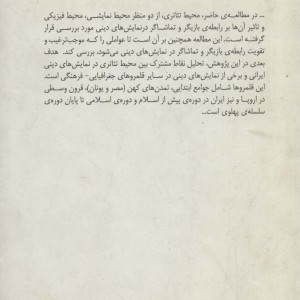 ... در مطالعه‌ی حاضر، محیط تئاتری، از دو منظر محیط نمایشی، محیط فیزیکی
و تاثیر آن‌ها بر رابطه‌ی بازیگر و تماشاگر در نمایش‌های دینی مورد بررسی قرار
گرفته است. این مطالعه همچنین بر آن است تا عواملی را که موجب ترغیب و
تقویت رابطه‌ی بازیگر و تماشاگر در نمایش‌های دینی می‌شود، بررسی کند. هدف
بعدی در این پژوهش، تحلیل نقاط مشترک بین محیط تئاتری در نمایش‌های دینی
ایرانی و برخی از نمایش‌های دینی در سایر قلمروهای جغرافیایی- فرهنگی است.
این قلمروها شامل جوامع ابتدایی، تمدن‌های کهن (مصر و یونان)، قرون وسطی
در اروپا و نیز ایران در دوره‌ی پیش از اسلام و دوره‌ی اسلامی تا پایان دوره‌ی
سلسله‌ی پهلوی است...